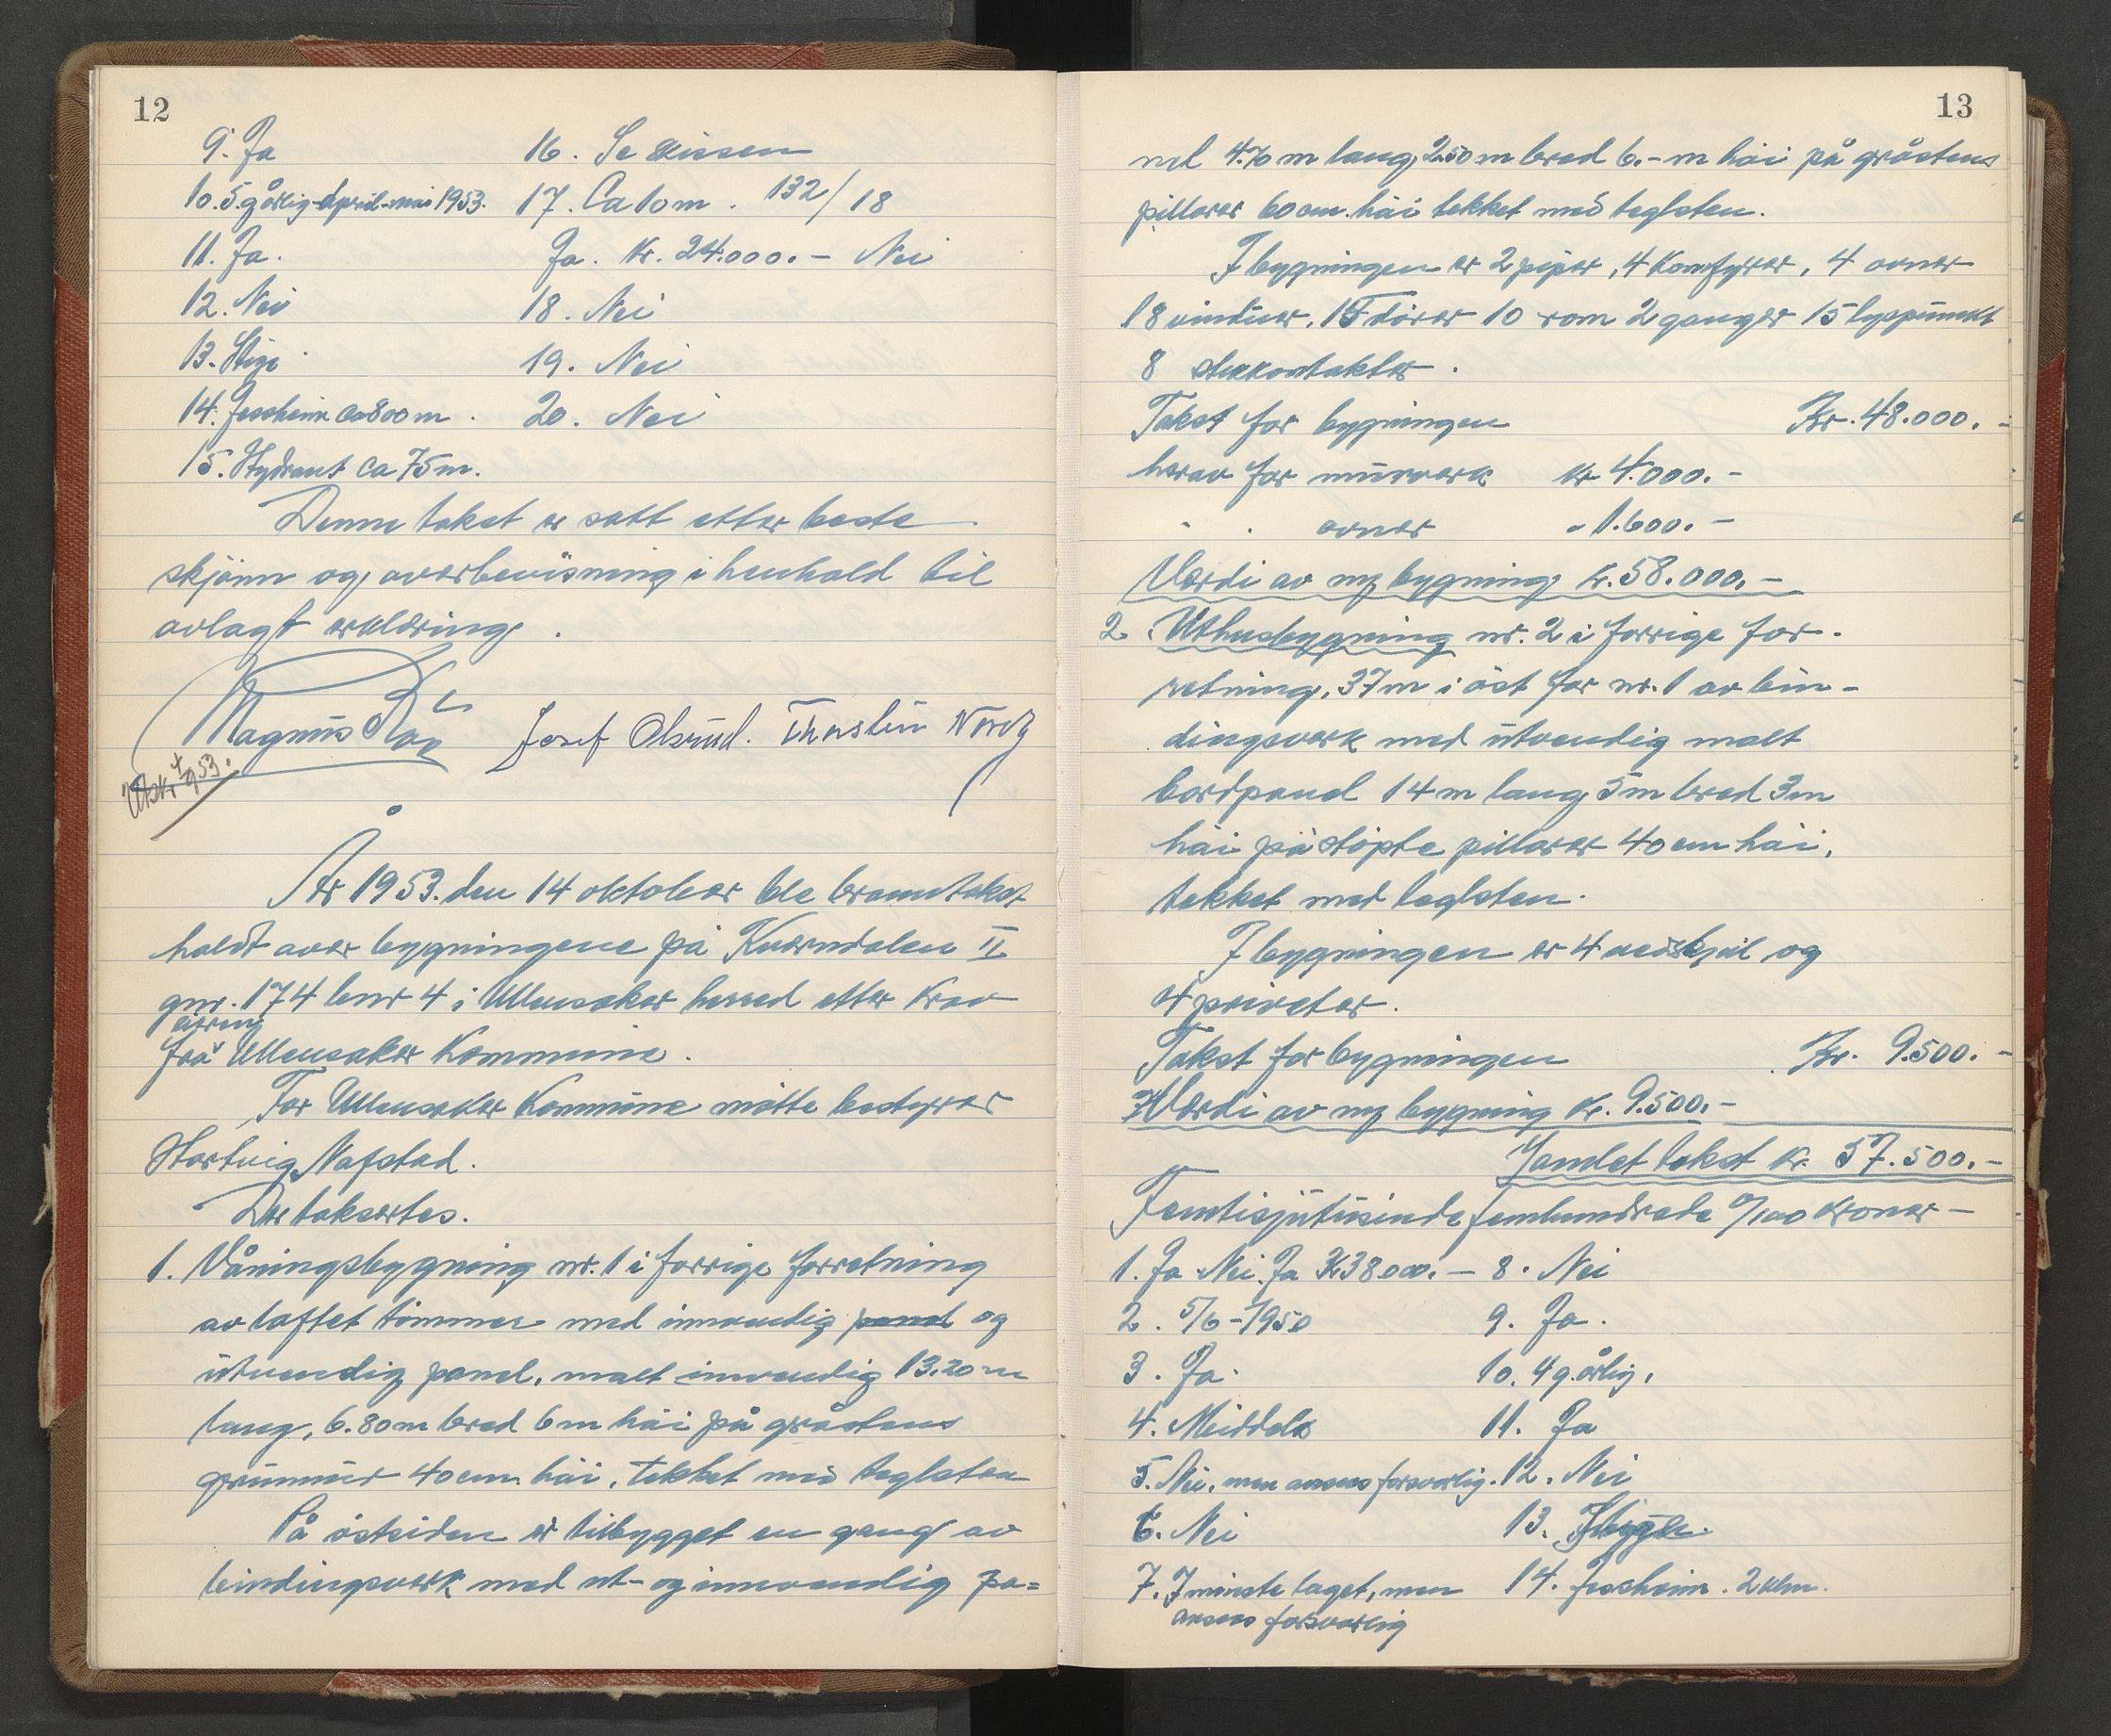 12
9. Ja
10. 5.g årlig-april-mai 1953.
11. Ja.
12. Nei
13. Stige
14. Jessheim ca 800 m.
15. Hydrant ca 75 m.
16. Se skissen
17. Ca 10 m. 132/18
Ja. Kr. 24.000.- Nei
18. Nei
19. Nei
20. Nei
Denne takst er satt etter beste
skjönn og overbevisning i henhold til
avlagt erklæring.
Magnus
Josef Olsrud. Thorstein Nordby
Utskr 1953.
År 1953. den 14 oktober ble branntakst
holdt over bygningene på Kverndalen II
gnr. 174 bnr 4 i Ullensaker herred etter krav
fra Ullensaker Kommune.
For Ullensaker Kommune mötte bestyrer
Hartvig Nafstad.
Der taksertes.
1. Våningsbygning nr. 1 i forrige forretning
av laftet tömmer med innvendig panel og
utvendig panel, malt innvendig 13.20 m
lang, 6.80 m bred 6 m höi på gråstens
grunnmur 40 cm. höi, tekket med teglsten
På östsiden er tilbygget en gang av
bindingsverk med ut- og innvendig pa=
13
nel 4.70 m lang, 2.50 m bred 6.- m höi på gråstens
pillarer 60 cm. höi tekket med teglsten.
I bygningen er 2 piper, 4 komfyrer, 4 ovner
18 vinduer, 15 dörer 10 rom 2 ganger 15 lyspunkt
8 stikkontakter.
Takst for bygningen Kr. 48.000.-
herav for murverk Kr 4.000.-
" " ovner " 1.600.-
Verdi av ny bygning Kr. 58.000.-
2. Uthusbygning nr. 2 i forrige for-
retning, 37 m i öst for nr. 1 av bin-
dingsverk med utvendig malt
bordpanel 14 m lang 5 m bred 3 m
höi på stöpte pillarer 40 cm höi,
tekket med teglsten.
I bygningen er 4 vedskjul og
4 priveter.
Takst for bygningen Kr. 9.500.-
Verdi av ny bygning Kr. 9.500.-
Samlet takst Kr. 57.500.-
Femtisjutusindefemhundrede 0/100 kroner -
1. Ja Nei. Ja Kr 38000.-
2. 5/6-1950
3. Ja.
4. Meiddels
5. Nei, men ansees forsvarlig.
6. Nei
7. I minste laget, men
ansees forsvarlig
8. Nei
9. Ja.
10. 4 g. årlig.
11. Ja
12. Nei
13. Stige.
14. Jessheim. 2 klm.